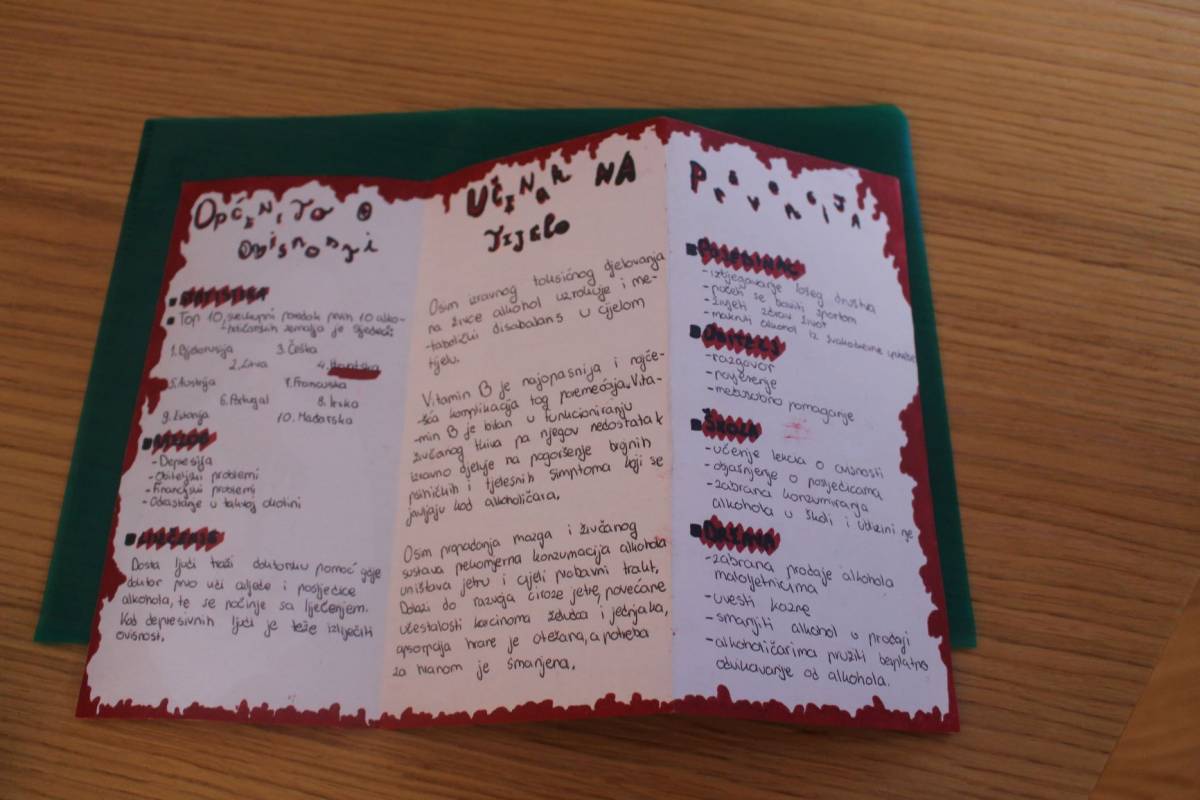 Općenito o
ovisnosti
STATISTIKA
Top 10, sveukupni poredak prvih 10 alko-
-holičarskih zemalja je sljedeći:
1. Bjelorusija 3. Češka
2. Litva 4. Hrvatska
5. Austrija 7. Francuska
6. Portugal 8. Irska
9. Estonija 10. Mađarska
- Depresija
- Obiteljski problemi
- Financijski problemi
- Odrastanje u takvoj okolini
LIJEČENJE
Dosta ljudi traži doktorsku pomoć gdje
doktor prvo uči ciljeće i posljedice
alkohola, te se počinje sa liječenjem.
Kod depresivnih ljudi je teže izliječiti
ovisnost.
UČINAK NA
TIJELO
Osim izravnog toksičnog djelovanja
na živce alkohol uzrokuje i me-
-tabolički disabalans u cijelom
tijelu.
Vitamin B je najopasnija i najče-
-šća komplikacija tog poremećaja. Vita-
-min B je bitan u funkcioniranju
živčanog tkiva pa njegov nedostatak
izravno djeluje na pogoršenje brojnih
psihičkih i tjelesnih simptoma koji se
javljaju kod alkoholičara.
Osim propadanja mozga i živčanog
sustava prekomjerna konzumacija alkohola
uništava jetru i cijeli probavni trakt,
Dolazi do razvoja ciroze jetre, povećane
učestalosti karcinoma želudca i jednjaka,
apsorpcija hrane je otežana, a potreba
za hranom je smanjena.
Prevencija
POJEDINAC
- izbjegavanje lošeg društva
- početi se baviti sportom
- živjeti zdrav život
- maknuti alkohol iz svakodnevne
OBITELJ
- razgovor
- povjerenje
- međusobno pomaganje
ŠKOLA
- učenje lekcija o ovisnosti
- objašnjenje o posljedicama
- zabrana konzumiranja
alkohola u školi i blizini nje
DRŽAVA
- zabrana prodaje alkohola
maloljetnicima
- uvesti kazne
- smanjiti alkohol u prodaji
- alkoholičarima pružiti besplatno
odvikavanje od alkohola.